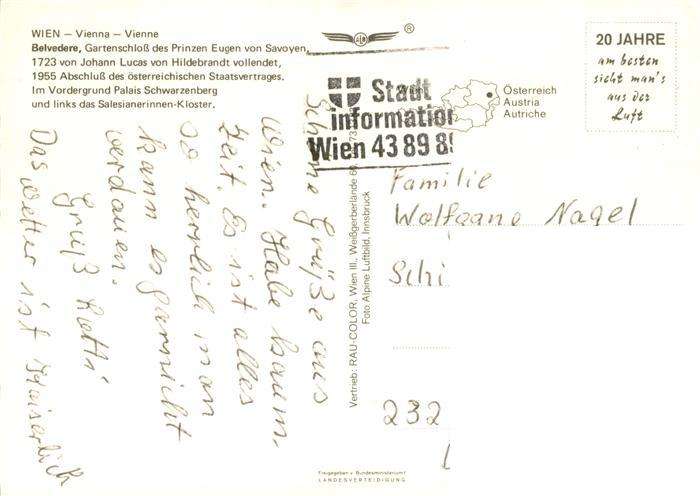 WIEN – Vienna – Vienne
Belvedere, Gartenschloß des Prinzen Eugen von Savoyen,
1723 von Johann Lucas von Hildebrandt vollendet,
1955 Abschluß des österreichischen Staatsvertrages.
Im Vordergrund Palais Schwarzenberg
und links das Salesianerinnen-Kloster.
®
Stadt
information
Wien 43 89 89
Österreich
Austria
Autriche
20 JAHRE
am besten
sieht man's
aus der
Luft
Schöne Grüße aus
Wien. Habe kaum
Zeit. Es ist alles
so herrlich man
kann es garnicht
verdauen.
Gruß Katti
Das Wetter ist Kaiserlich
Vertrieb: RAU-COLOR, Wien III., Weißgerberlände
Foto: Alpine Luftbild, Innsbruck
Familie
Wolfgang Nagel
Schi
232
Freigegeben v. Bundesministerium f.
LANDESVERTEIDIGUNG